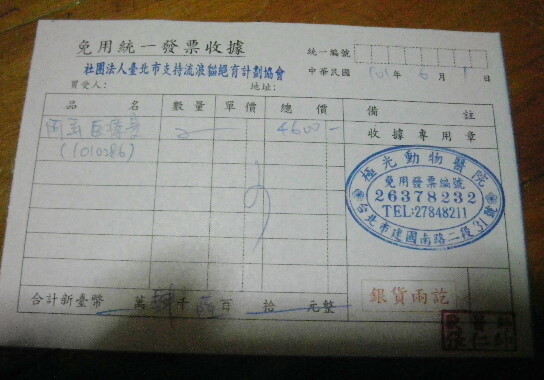 免用統一發票收據
統一編號
社團法人臺北市支持流浪貓絕育計劃協會
中華民國 101年 6月 1日
買受人: 地址:
品名 數量 單價 總價 備註
2 4600-
收據專用章
(1010286)
極光動物醫院
免用發票編號
26378232
TEL:27848211
台北市建國南路二段31號
銀貨兩訖
合計新臺幣 萬肆千陸百 拾 元整